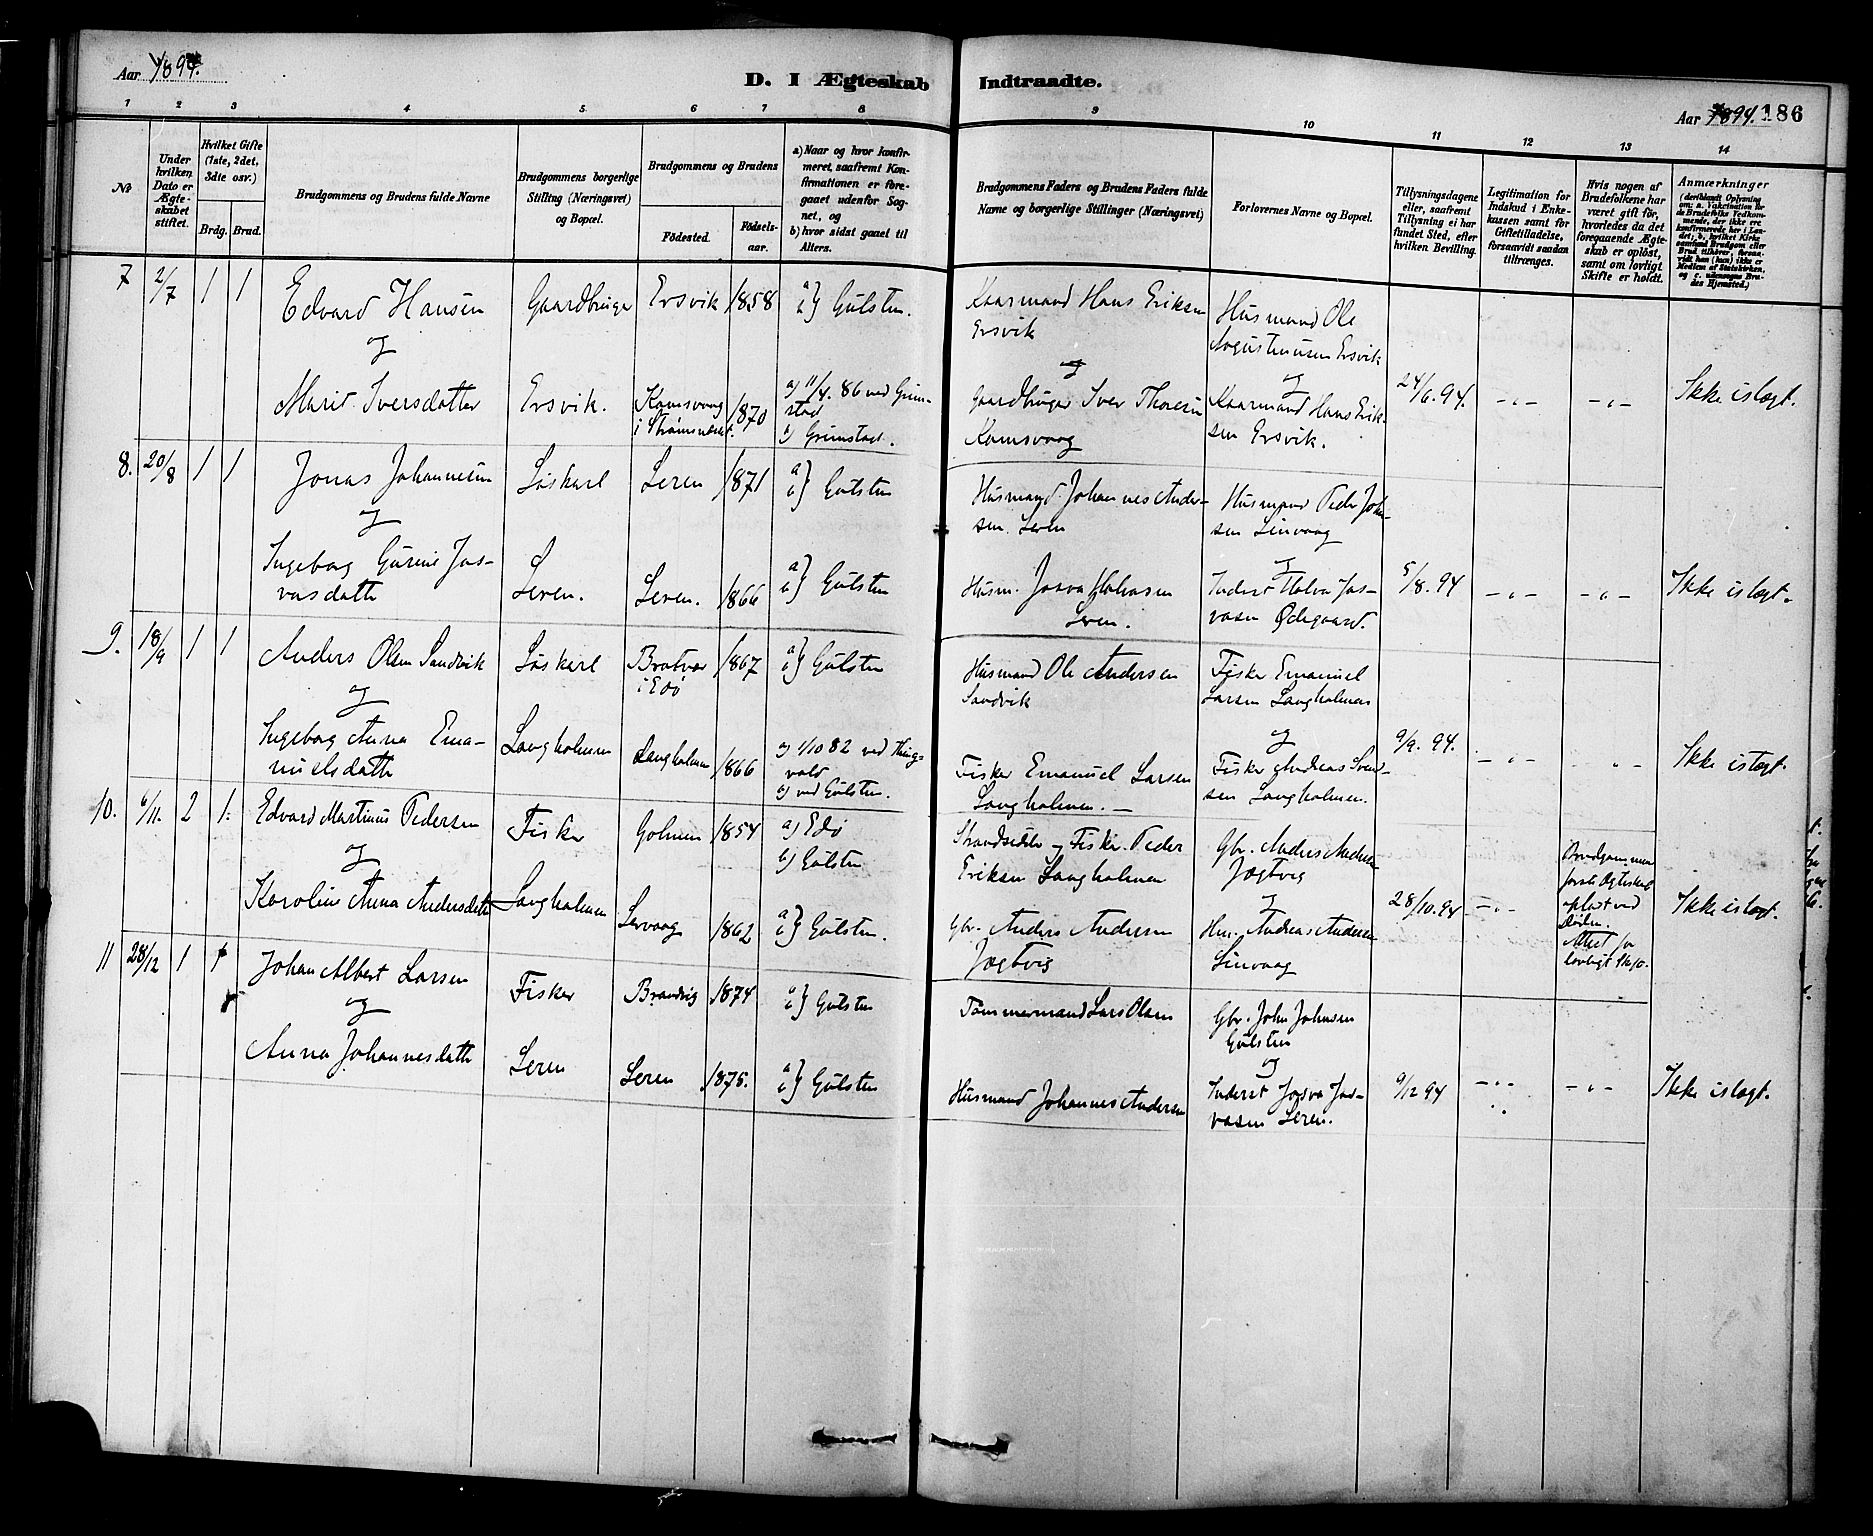 Aar 1894.
D. I Ægteskab Indtraadte.
Aar 1894. 186
1 2 3 4 5 6 7 8 9 10 11 12 13 14
No
Under hvilken Dato er Ægteskabet stiftet.
Hvilket Gifte (1ste, 2det, 3die osv.)
Brdg. Brud.
Brudgommens og Brudens fulde Navne
Brudgommens borgerlige Stilling (Næringsvei) og Bopæl.
Brudgommens og Brudens
Födested.
Födsels-aar.
a) Naar og hvor konfirmeret, saafremt Konfirmationen er foregaaet udenfor Sognet, og
b) hvor sidst gaaet til Alters.
Brudgommens Faders og Brudens Faders fulde Navne og borgerlige Stillinger (Næringsvei)
Forlovernes Navne og Bopæl.
Tillysningsdagene eller, saafremt Tillysning ei har fundet Sted, efter hvilken Bevilling.
Legitimation for Indskud i Enkekassen samt for Giftetilladelse, forsaavidt saadan tiltrænges.
Hvis nogen af Brudefolkene har været gift för, hvorledes da det foregaaende Ægteskab er oplöst, samt om lovligt Skifte er holdt.
Anmærkninger
7 2/7 1 1
Edvard Hansen
og
Marit Iversdatter
Gaardbruger
Ersvik.
Ersvik 1858
Ramsvaag
1870
a) b) Gulsten.
a) 11/4. 86 ved Grimstad
b) Grimstad.
Kaarmand Hans Eriksen
Ersvik
og
Gaardbruger Iver Thoresen
Ramsvaag
Husmand Ole
Augustinusen Ersvik
og
Kaarmand Hans Eriksen Ersvik.
24/6. 94.
- " -
- " -
Ikke i slægt.
8. 20/8 1 1
Jonas Johannesen
og
Ingeborg Gurine Josvasdatte
Løskarl
Leren.
Leren 1871
Leren. 1866
a) b) Gulsten
a) b) Gulsten
Husmand Johannes Andersen Leren
Husm. Josva
Leren.
Husmand Peder Johnsen Linvaag
og
Inderst Halvor Josvasen Ødegaard.
5/8. 94
- " -
- " -
Ikke i slægt.
9. 18/9 1 1
Anders Olsen Sandvik
og
Ingeborg Anna Emanuelsdatte
Løskarl
Langholmen
Bratvær
i Edø
1867
Langholmen 1866
a) b) Gulsten
a) 1/10 82 ved Thingvold
b) ved Gulsten.
Husmand Ole Andersen
Sandvik
Fisker Emanuel Larsen
Langholmen. -
Fisker Emanuel
Larsen Langholmen
og
Fisker Andreas Svendsen Langholmen.
9/9. 94.
- " -
"
Ikke i slægt.
10. 6/11. 2 1.
Edvard Martinus Pedersen
og
Karoline Anna Andersdatte
Fisker
Langholmen
Golmen 1854
Lervaag 1862
a) Edø
b) Gulsten
a) b) Gulsten.
Strandsidder og Fisker Peder
Eriksen Langholmen
Gbr. Anders Andersen
Jøgtvig
Gbr. Anders Andersen
Jøgtvig
og
Hm. Andreas Andersen
Linvaag
28/10. 94
- " -
Brudgommens
første Ægteskab
opløst ved
Døden.
Attest for
lovligt Skifte.
Ikke i slægt.
11 28/12 1 1
Johan Albert Larsen
og
Anna Johannesdatte
Fisker
Leren
Brandvig 1874
Leren 1875.
a) b) Gulsten
a) b) Gulsten
Tømmermand Lars Olsen
Husmand Johannes Andersen
Gbr. John Johnsen
Gulsten
og
Inderst Josva Josvasen Leren.
9/12 94
- " -
- " -
Ikke i slægt.